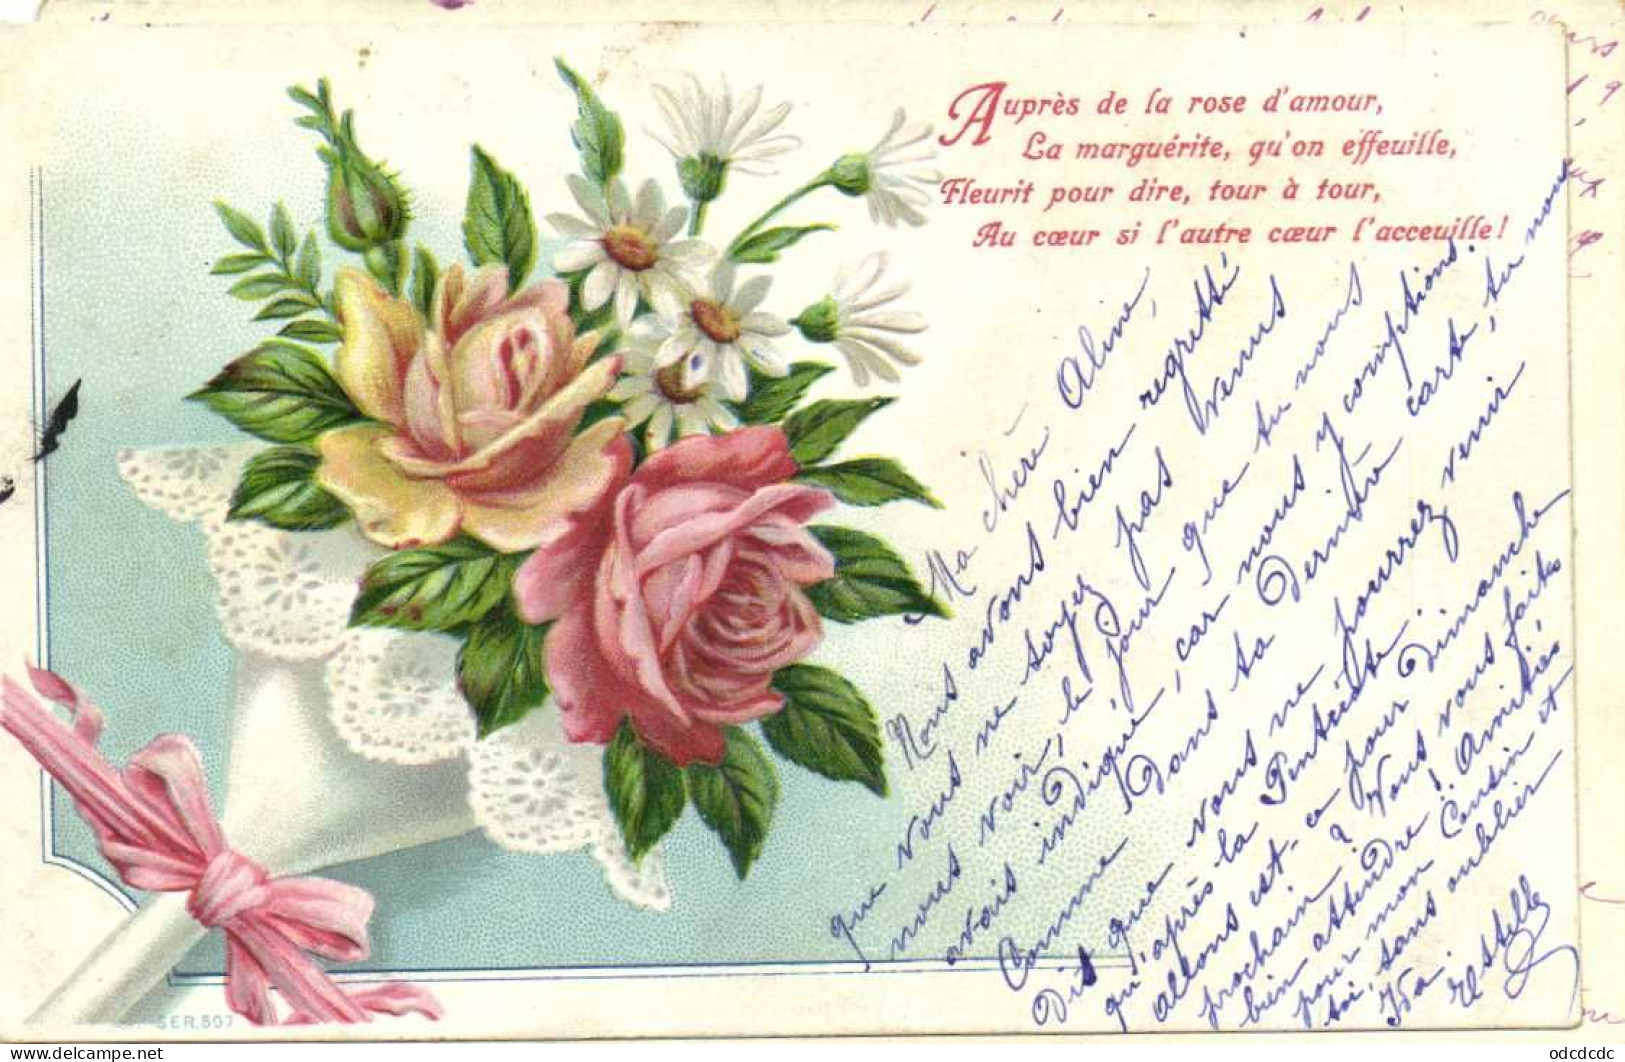 Auprès de la rose d'amour,
La marguérite, qu'on effeuille,
Fleurit pour dire, tour à tour,
Au cœur si l'autre cœur l'acceuille!
Ma chère Aline,
Nous avons bien regretté
que vous ne soyez pas venus
nous voir, le jour que tu nous
avais indiqué, car nous y comptions.
Comme dans ta dernière carte, tu nous
Dit que vous ne pourrez venir
qu'après la Pentecôte.
allons est-ce pour Dimanche
prochain? Nous vous faites
bien attendre! Amitiés
pour mon Cousin et
toi, sans oublier
Estelle
SER.507
www.delcampe.net
odcdcdc